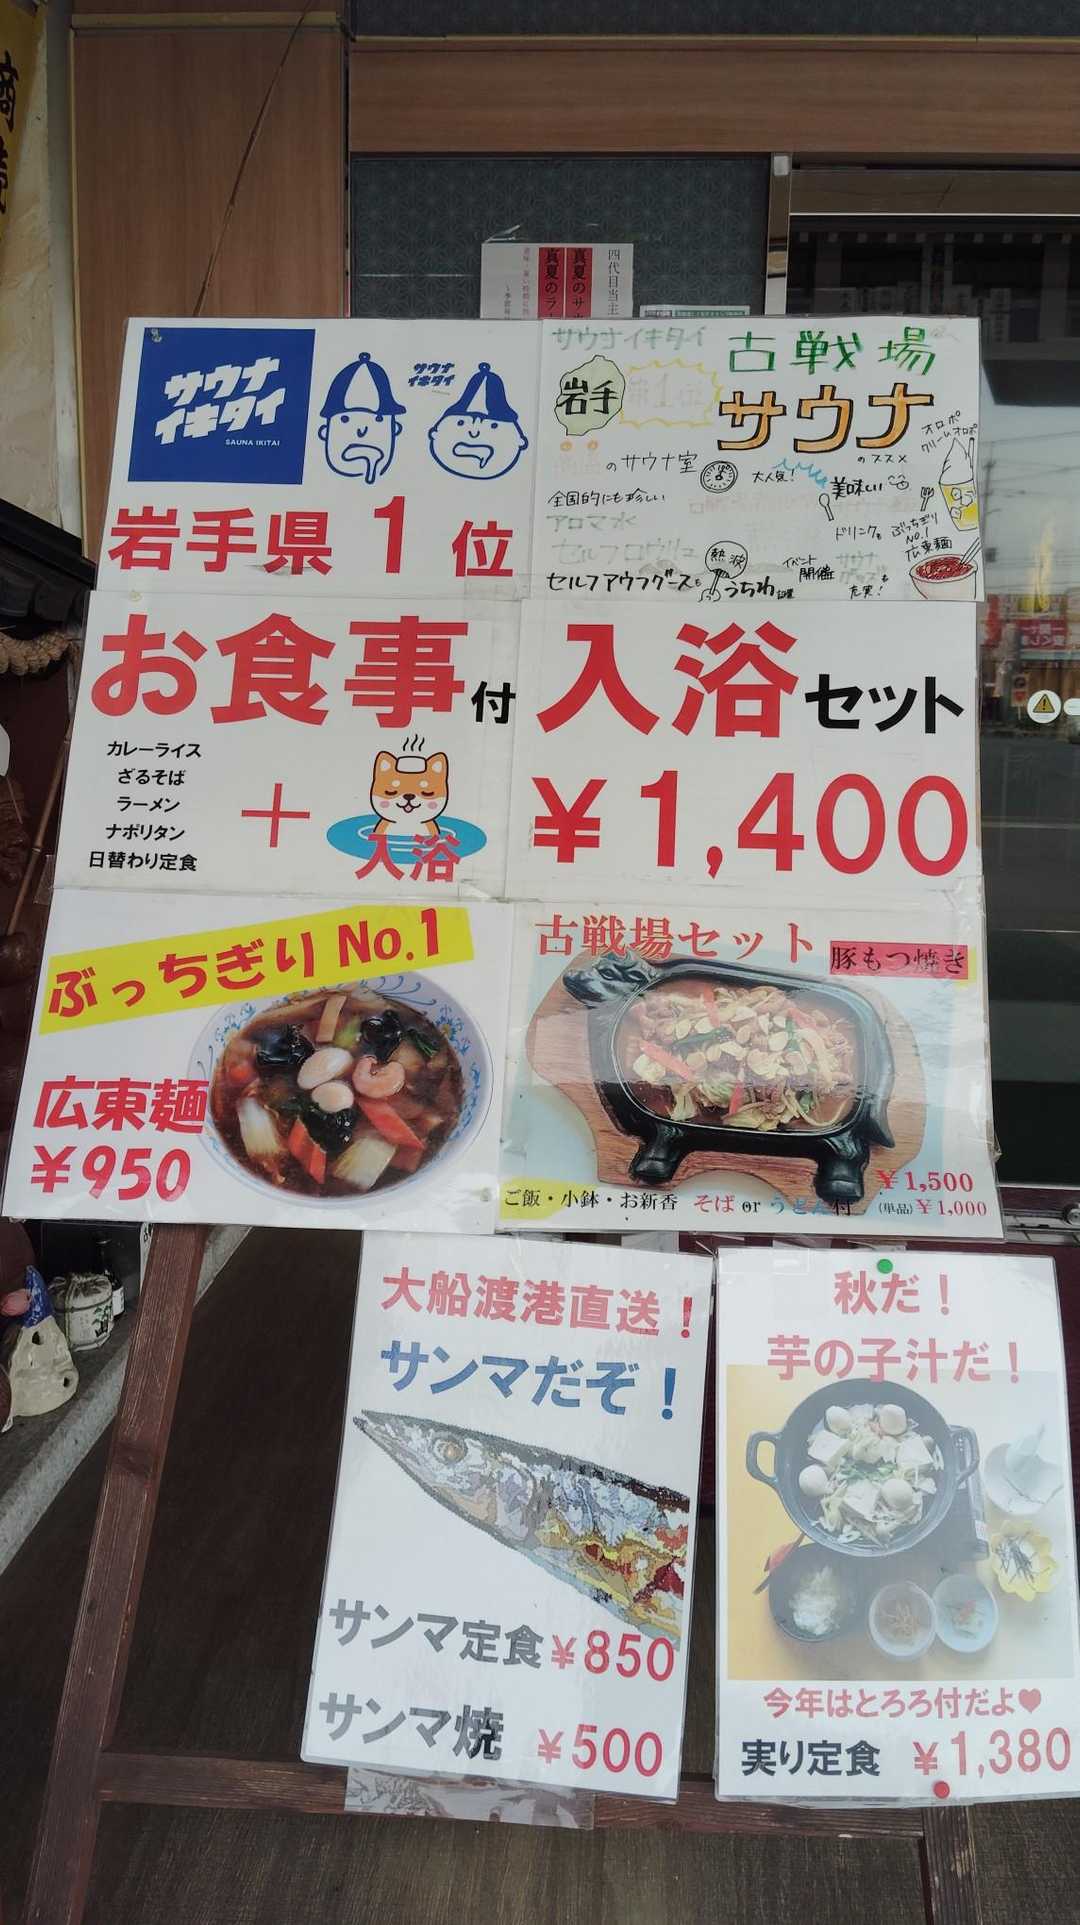 四代目当主
真夏のサ
真夏のラ
サウナ
イキタイ
SAUNA IKITAI
サウナ
イキタイ
岩手県1位
サウナイキタイ
岩手
第1位
古戦場
サウナ
のススメ
のサウナ室
全国的にも珍しい
アロマ水
セルフロウリュ
セルフアウフグースも
熱波
うちわ
大人気!
美味しい
オロポ
クリームオロポ
ドリンクも
ぶっちぎり
No.1
広東麺
イベント
開催
サウナ
グッズも
充実!
お食事付
カレーライス
ざるそば
ラーメン
ナポリタン
日替わり定食
+
入浴
入浴セット
¥1,400
ぶっちぎりNo.1
広東麺
¥950
古戦場セット
豚もつ焼き
¥1,500
ご飯・小鉢・お新香 そば or うどん付
(単品)¥1,000
大船渡港直送!
サンマだぞ!
サンマ定食 ¥850
サンマ焼 ¥500
秋だ!
芋の子汁だ!
今年はとろろ付だよ♥
実り定食 ¥1,380